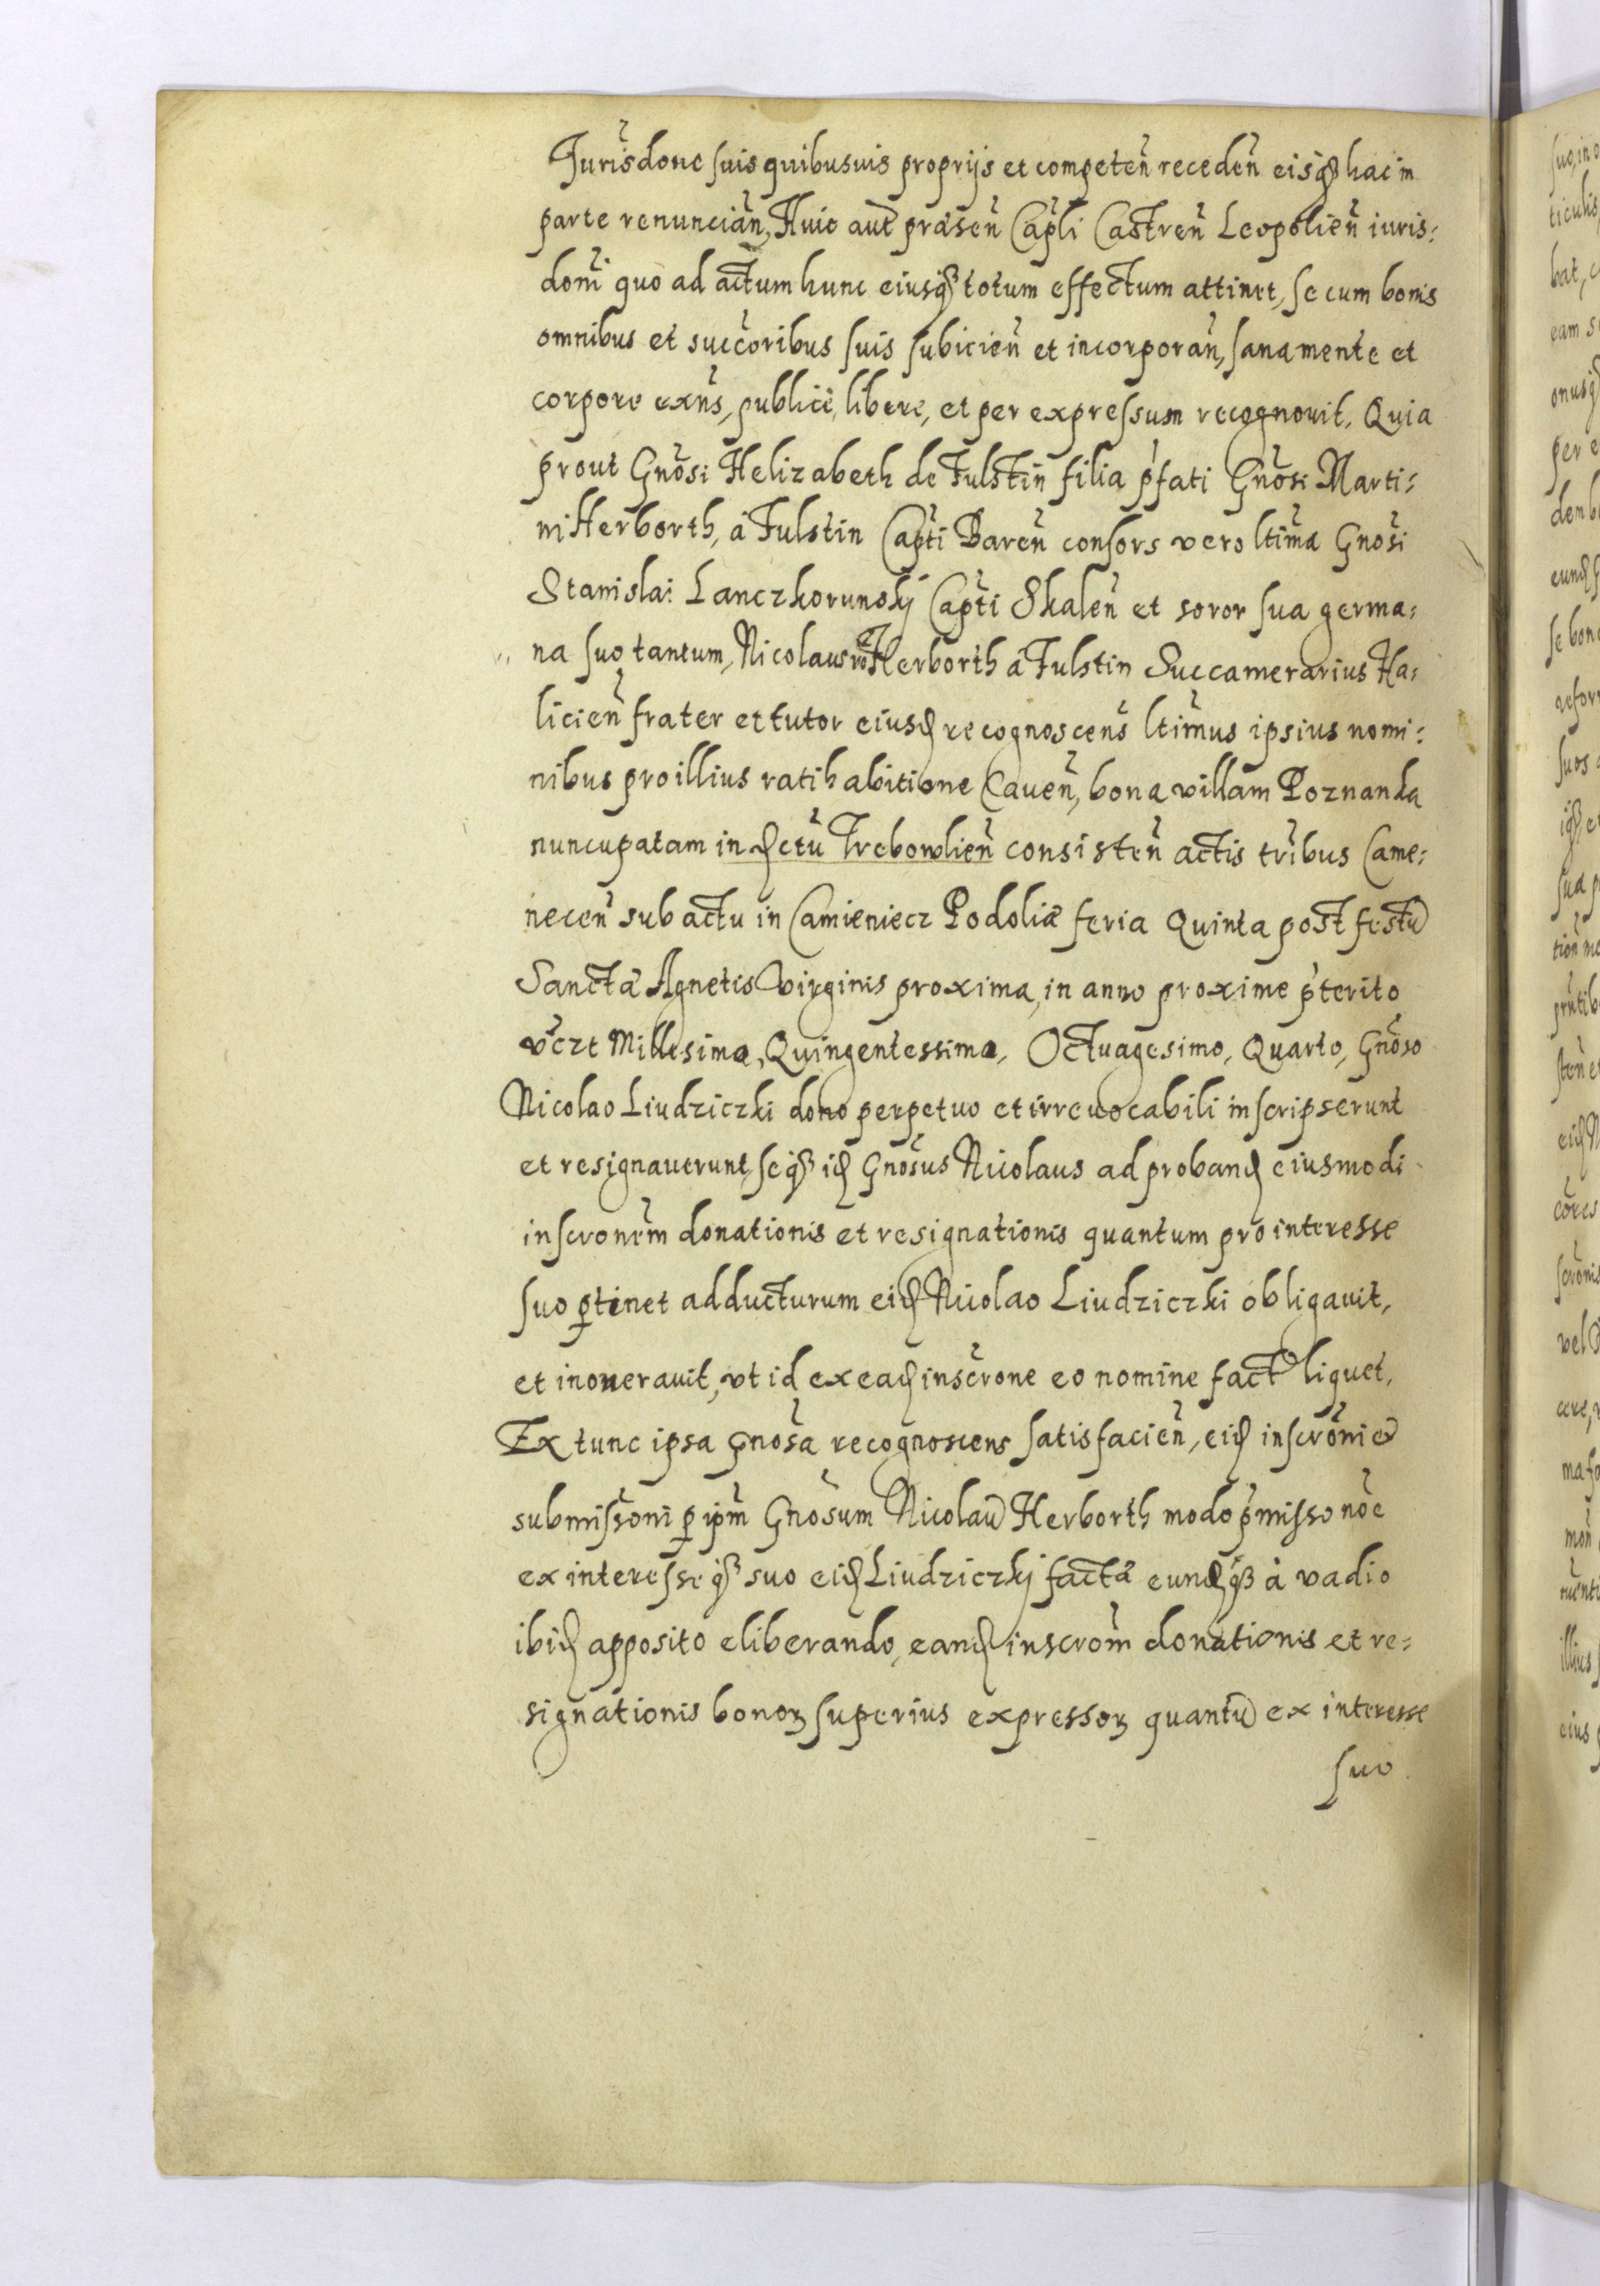 Jurisdone suis quibusuis proprijs et competeñ recedeñ eisqʒ hac in
parte renunciañ, Huic aut̃ præseñ Capl̃i Castreñ Leopolieñ iuris:
doni quo ad actum hunc eiusqʒ totum effectum attinet, se cum bonis
omnibus et succ̃oribus suis subicieñ et incorporañ, sana mente et
corpore exñs, publicè, libere, et per expressum recognouit, Quia
prout Gnõsi Helizabeth de Fulstin filia p̃fati Gnõsi Marti:
ni Herborth, à Fulstin Capt̃i Bareñ consors vero ltĩma Gnõsi
Stanislai Lanczkorunskj Capt̃i Skaleñ et soror sua germa:
na suo tantum, Nicolaus vo Herborth à Fulstin Succamerarius Ha:
licieñ frater et tutor eiusd recognoscens ltĩmus ipsius nomi:
nibus pro illius ratihabitione Caueñ, bona villam Poznanka
nuncupatam in dctũ Trebowlieñ consisteñ actis trĩbus Came:
neceñ sub actu in Camieniecz Podoliæ feria Quinta post festũ
Sanctæ Agnetis Virginis proxima, in anno proxime p̃terito
vczt Millesimo, Quingentessimo, Octuagesimo, Quarto, Gnõso
Nicolao Liudziczki dono perpetuo et irreuocabili inscripserunt
et resignauerunt, seqʒ id Gnõsus Nicolaus ad proband eiusmodi
inscronẽm donationis et resignationis quantum pro interesse
suo ꝑtinet adducturum eid Nicolao Liudziczki obligauit,
et inonerauit, vt id ex ead inscr̃one eo nomine fact liquet,
Ex tunc ipsa Gnõsa recognoscens satisfacieñ, eid inscrõni et
submissoni ꝑ ip̃m Gnõsum Nicolaũ Herborth modo p̃misso nõe
ex interesseqʒ suo eid Liudziczkj factæ eundqʒ à vadio
ibid apposito eliberando, eand inscrom̃ donationis et re:
signationis bonoꝝ superius expressoꝝ quantũ ex interesse
suo